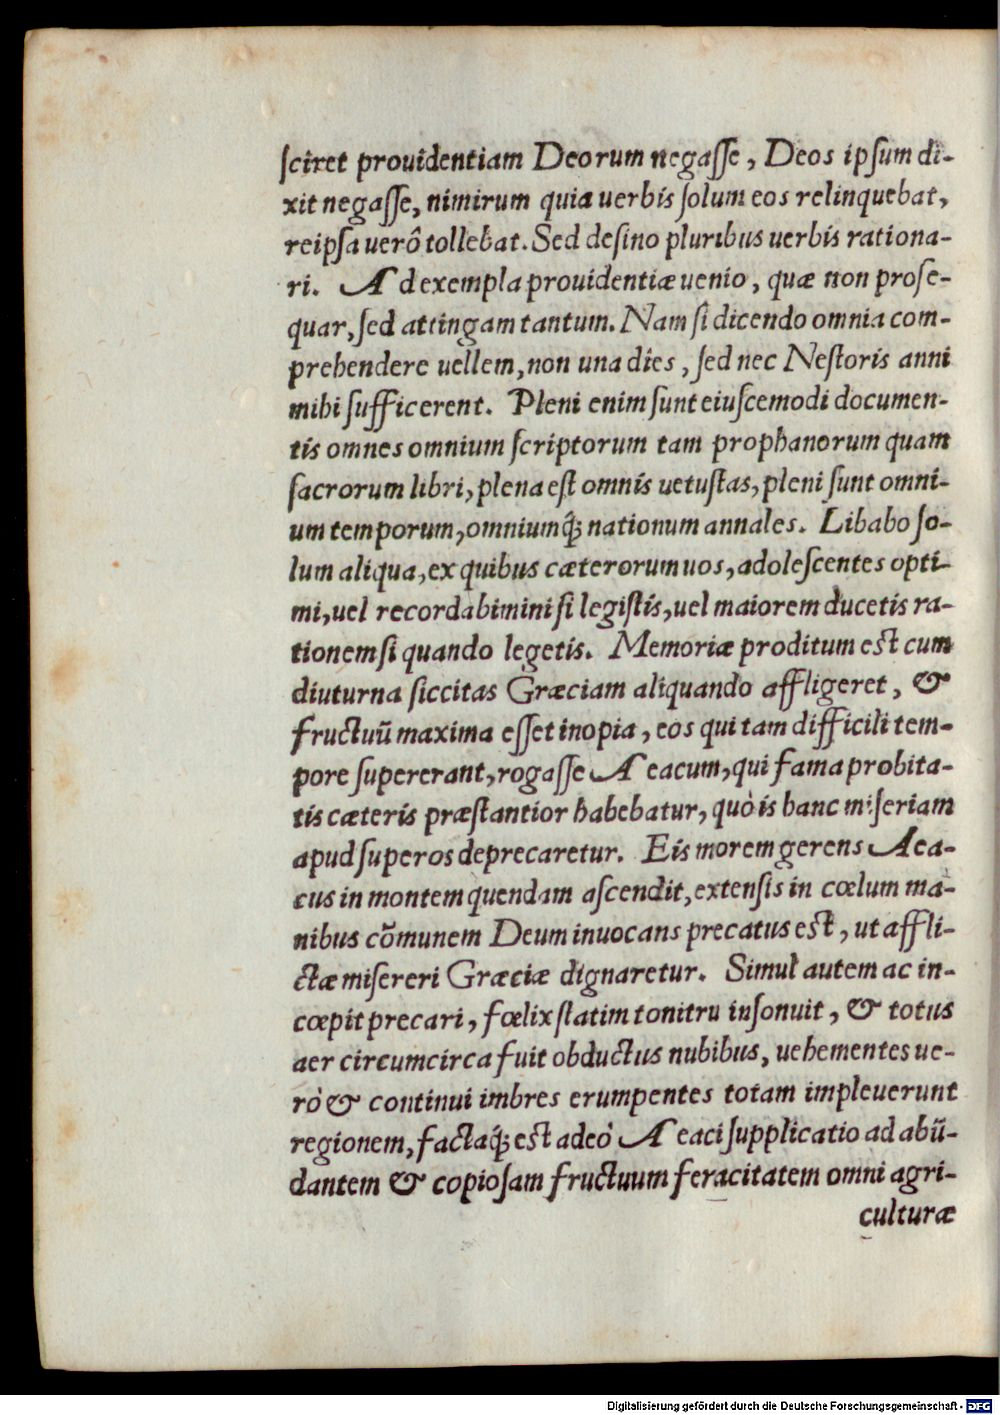 sciret prouidentiam Deorum negasse, Deos ipsum di-
xit negasse, nimirum quia uerbis solum eos relinquebat,
reipsa uerô tollebat. Sed desino pluribus uerbis rationa-
ri. Ad exempla prouidentiæ uenio, quæ non prose-
quar, sed attingam tantum. Nam si dicendo omnia com-
prehendere uellem, non una dies, sed nec Nestoris anni
mihi sufficerent. Pleni enim sunt eiuscemodi documen-
tis omnes omnium scriptorum tam prophanorum quam
sacrorum libri, plena est omnis uetustas, pleni sunt omni-
um temporum, omniumq́; nationum annales. Libabo so-
lum aliqua, ex quibus cæterorum uos, adolescentes opti-
mi, uel recordabimini si legistis, uel maiorem ducetis ra-
tionem si quando legetis. Memoriæ proditum est cum
diuturna siccitas Græciam aliquando affligeret, &
fructuũ maxima esset inopia, eos qui tam difficili tem-
pore supererant, rogasse Aeacum, qui fama probita-
tis cæteris præstantior habebatur, quò is hanc miseriam
apud superos deprecaretur. Eis morem gerens Aea-
cus in montem quendam ascendit, extensis in cœlum ma-
nibus cõmunem Deum inuocans precatus est, ut affli-
ctæ misereri Græciæ dignaretur. Simul autem ac in-
cœpit precari, fœlix statim tonitru insonuit, & totus
aer circumcirca fuit obductus nubibus, uehementes ue-
rò & continui imbres erumpentes totam impleuerunt
regionem, factaq́; est adeò Aeaci supplicatio ad abũ-
dantem & copiosam fructuum feracitatem omni agri-
culturæ
Digitalisierung gefördert durch die Deutsche Forschungsgemeinschaft - DFG